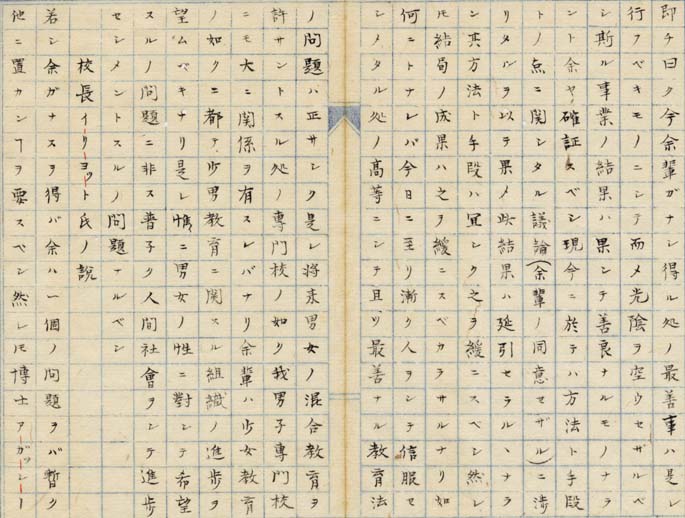 即チ曰ク今余輩ガナシ得ル処ノ最善事ハ是レ
行フベキモノニシテ而メ光陰ヲ空ウセザルベ
シ斯ル事業ノ結果ハ果シテ善良ナルモノナラ
ント余ヤ確証スベシ現今ニ於テハ方法ト手段
トノ点ニ関シタル議論(余輩ノ同意セザル)ニ渉
リタルヲ以テ果メ此結果ハ延引セラルヽナラ
ン其方法ト手段ハ宜シク之ヲ緩ニスベシ然レ
𪜈結局ノ成果ハ之ヲ緩ニスベカラサルナリ如
何ニトナレバ今日ニ至リ漸ク人ヲシテ信服セ
シメタル処ノ高等ニシテ且ツ最善ナル教育法
ノ問題ハ正サシク是レ将来男女ノ混合教育ヲ
許サントスル処ノ専門校ノ如ク我男子専門校
ニモ大ニ関係ヲ有スレバナリ余輩ハ少女教育
ノ如クニ都テ少男教育ニ関スル組織ノ進歩ヲ
望ムベキナリ是レ惟ニ男女ノ性ニ對シテ希望
スルノ問題ニ非ス普子ク人間社會ヲシテ進歩
セシメントスルノ問題ナルベシ
校長イリヨット氏ノ説
若シ余ガナスヲ得バ余ハ一個ノ問題ヲバ暫ク
他ニ置カンヿヲ要スベシ然レ𪜈博士アーガッシー